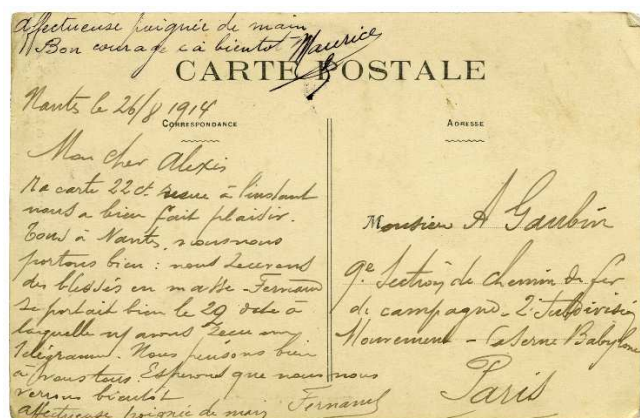 Affectueuse poignée de main
Bon courage & à bientôt Maurice
CARTE POSTALE
Nantes le 26/8 1914
CORRESPONDANCE
ADRESSE
Mon cher Alexis
Ta carte 22 ct reçue à l'instant
nous a bien fait plaisir.
Tous à Nantes, nous nous
portons bien : nous recevons
des blessés en masse - Fernand
se portait bien le 20 date à
laquelle ns avons reçu un
télégramme. Nous pensons bien
à vous tous. Espérons que nous nous
verrons bientôt
affectueuse poignée de main Fernand
Monsieur A Gaubin
9e Section de chemin de fer
de campagne - 2e Subdivision
Mouvement - Caserne Babylone
Paris